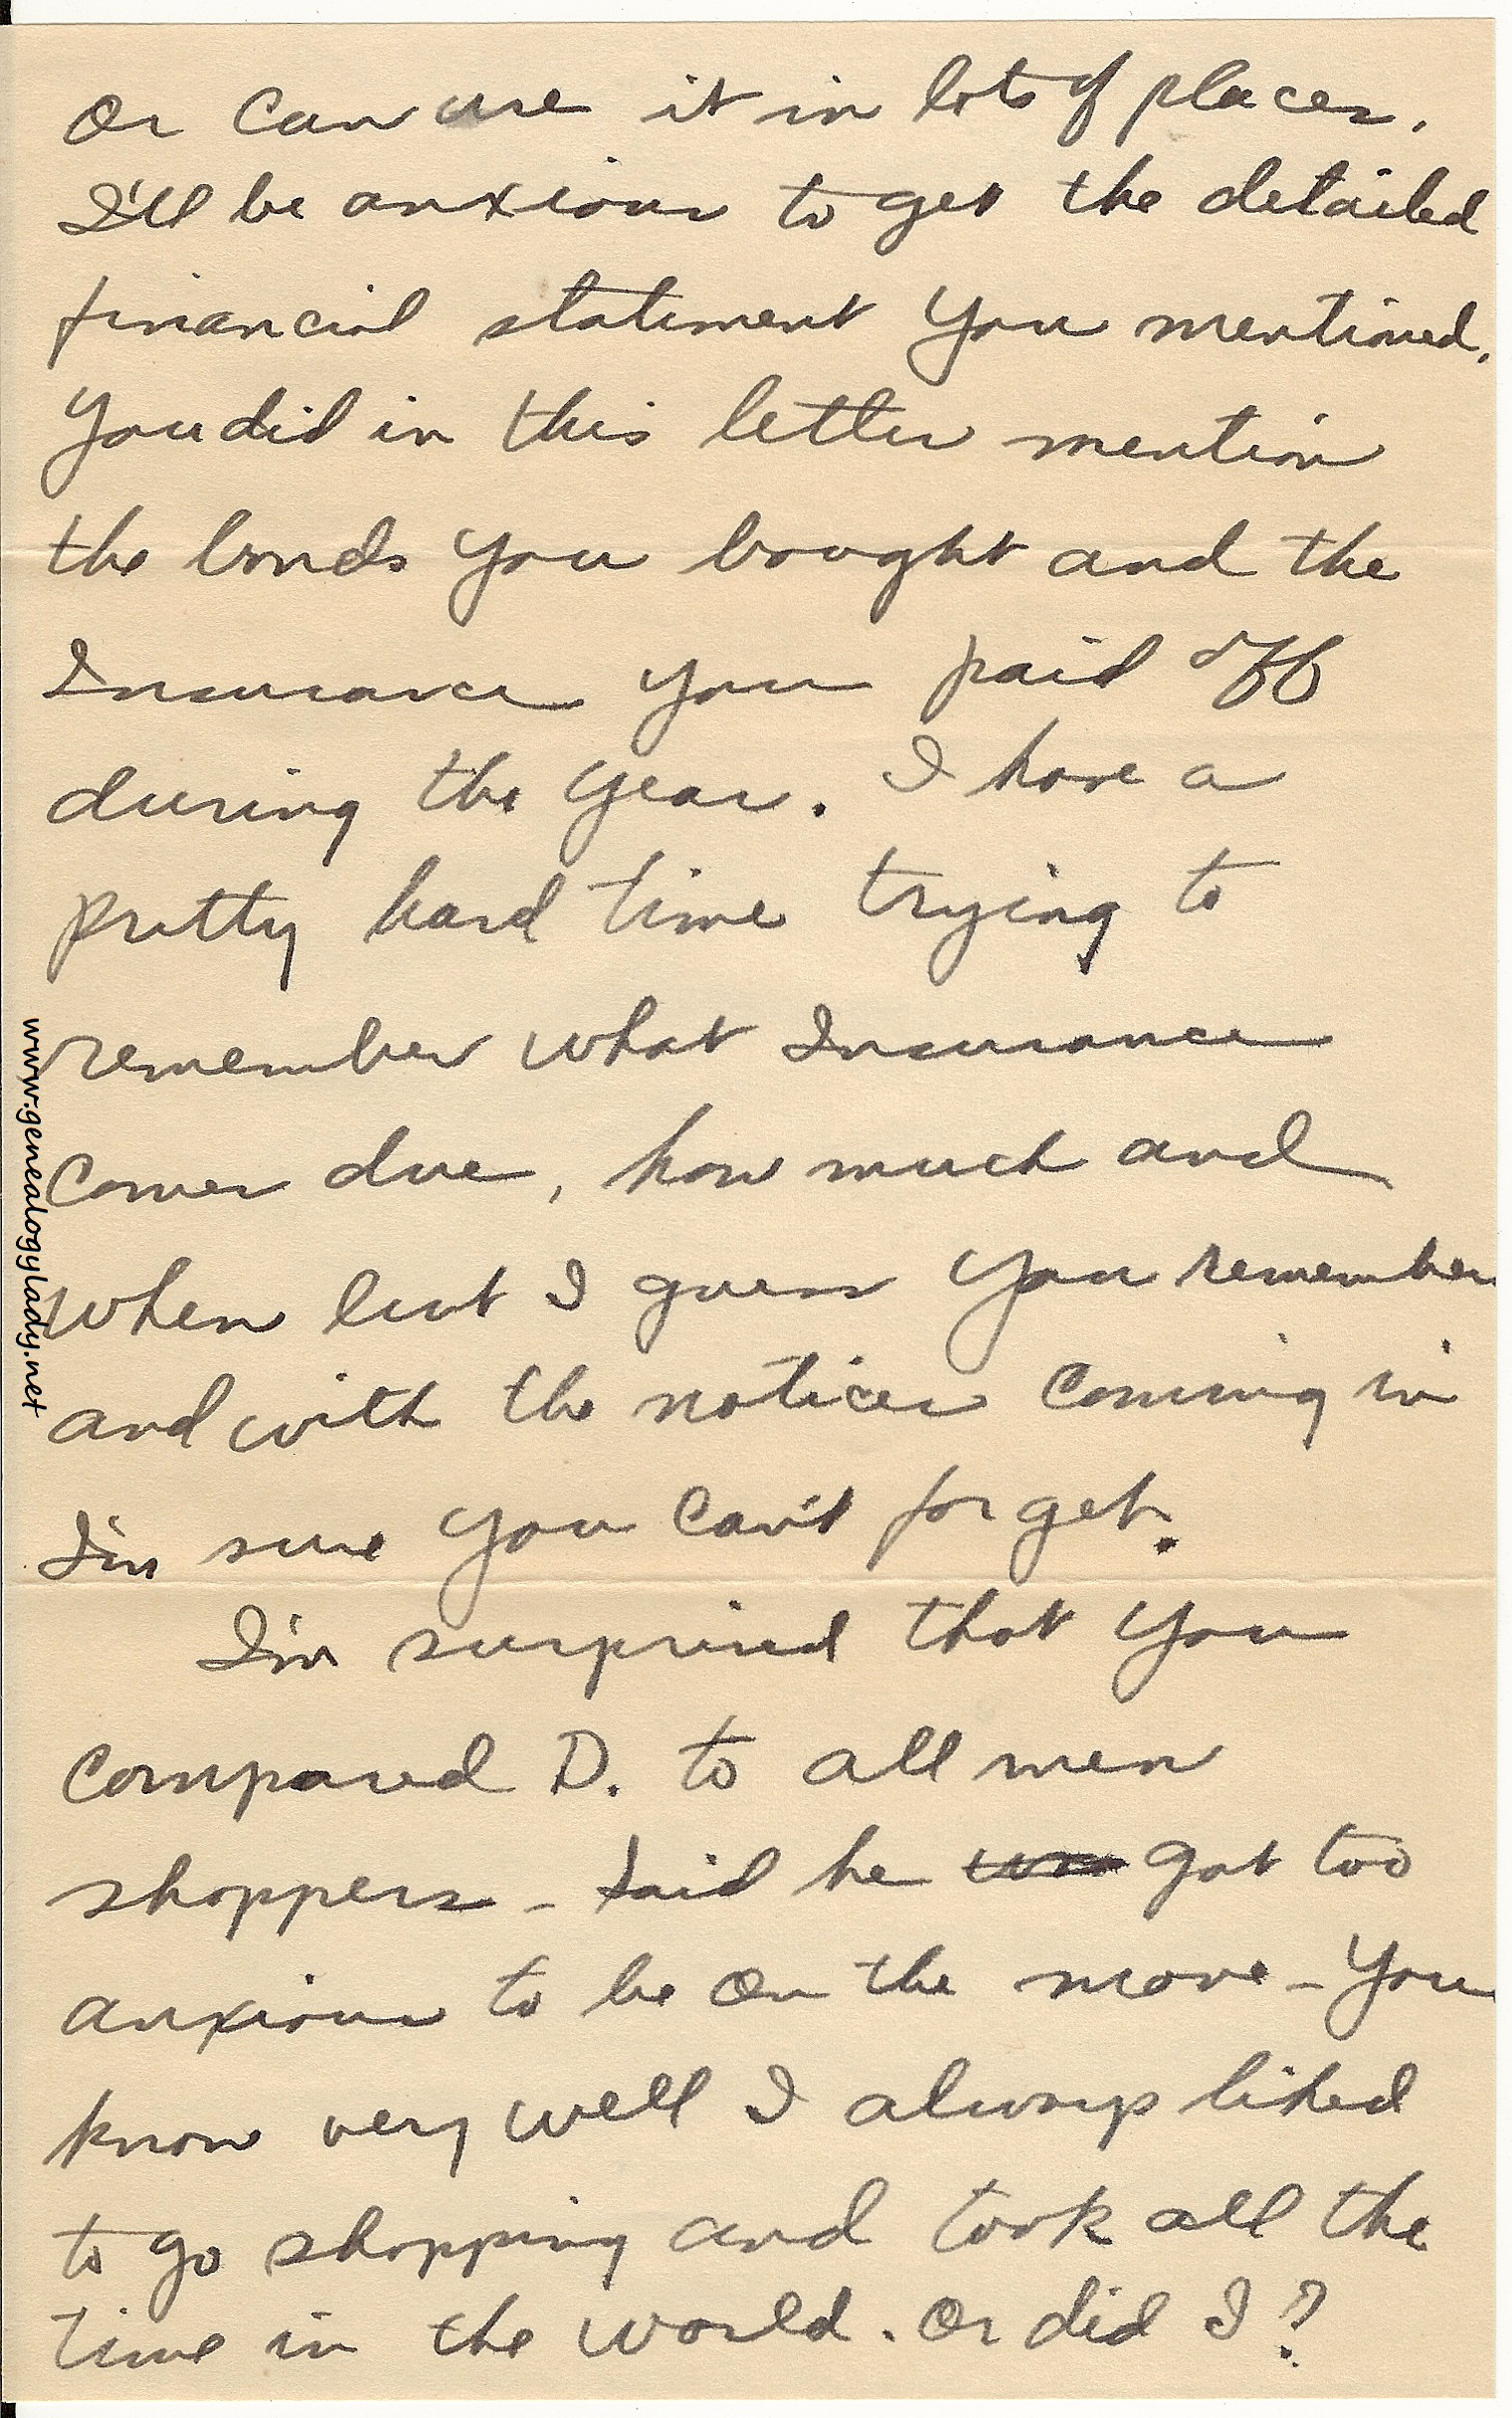 Or can use it in lots of places.
I'll be anxious to get the detailed
financial statement you mentioned.
You did in this letter mention
the bonds you bought and the
Insurance you paid off
during the year. I have a
pretty hard time trying to
remember what Insurance
comes due, how much and
when but I guess you remember
and with the notices coming in
I'm sure you can't forget.
I'm surprised that you
compared D. to all men
shoppers - said he was got too
anxious to be on the move - You
know very well I always liked
to go shopping and took all the
time in the world. Or did I?
www.genealogylady.net